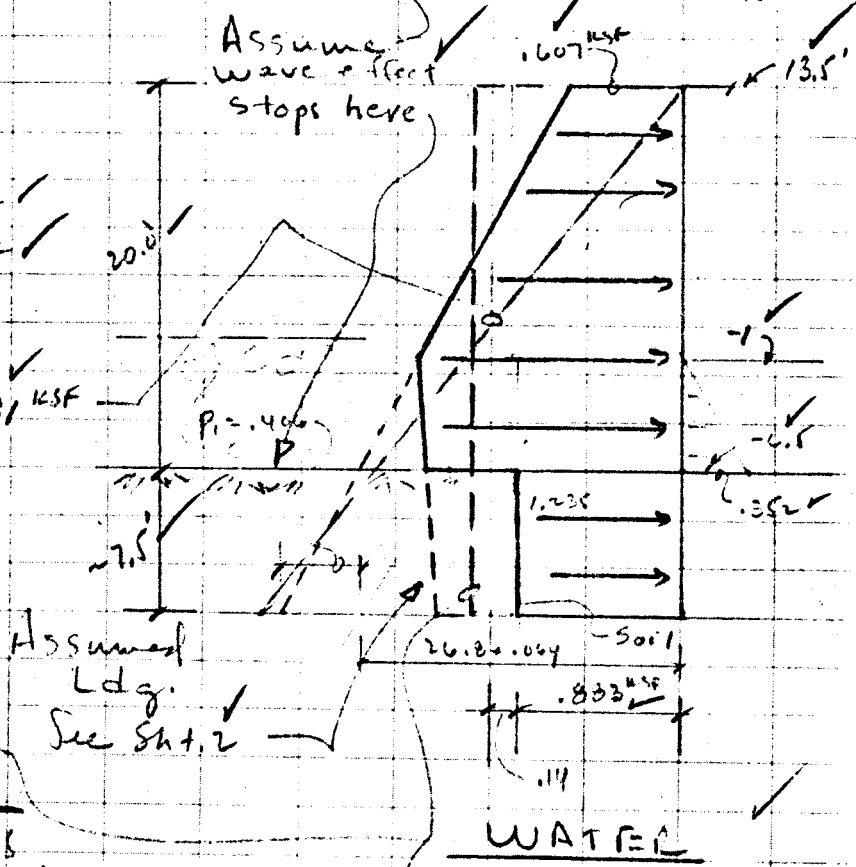 Assume
wave effect
stops here
.607 KSF
13.5'
20.0'
KSF
P₁ = .406
-6.5
.352
1.235
~7.5'
Soil
Assumed
Ldg.
See Sht. 2
26.26.064
.833 KSF
.14
WATER